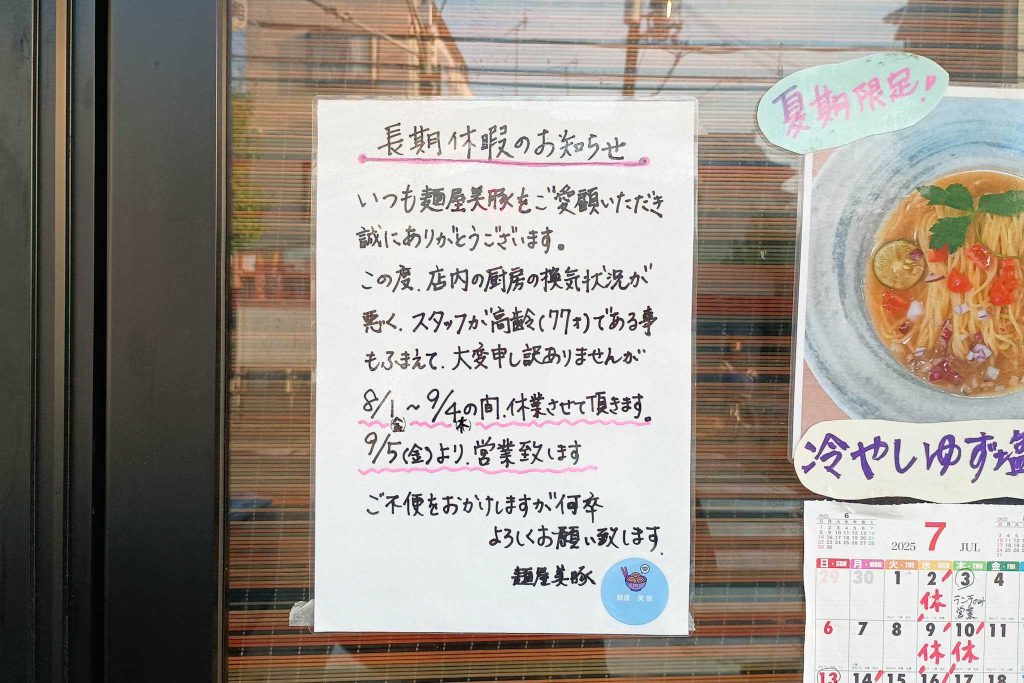 長期休暇のお知らせ
いつも麺屋美豚をご愛顧いただき
誠にありがとうございます。
この度、店内の厨房の換気状況が
悪く、スタッフが高齢(77才)である事
もふまえて、大変申し訳ありませんが
8/1(金)～9/4(木)の間、休業させて頂きます。
9/5(金)より、営業致します
ご不便をおかけしますが何卒
よろしくお願い致します。
麺屋美豚
麺屋 美豚
夏期限定!
冷やしゆず塩
2025 6
2025 7 JUL
日・SUN 月・MON 火・TUE 水・WED 木・THU 金・FRI
29 30 1 2 3 4
休 ランチのみ
営業
6 7 8 9 10 11
休 休
13 14 15 16 17 18